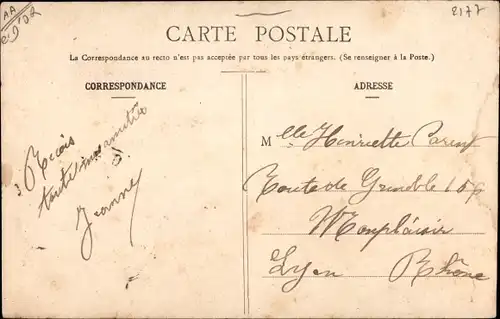 AA
2177
CARTE POSTALE
La Correspondance au recto n'est pas acceptée par tous les pays étrangers. (Se renseigner à la Poste.)
CORRESPONDANCE
Reçois
toute mon amitié
Jeanne
ADRESSE
Melle Henriette Parent
Route de Grenoble 159
Monplaisir
Lyon Rhône